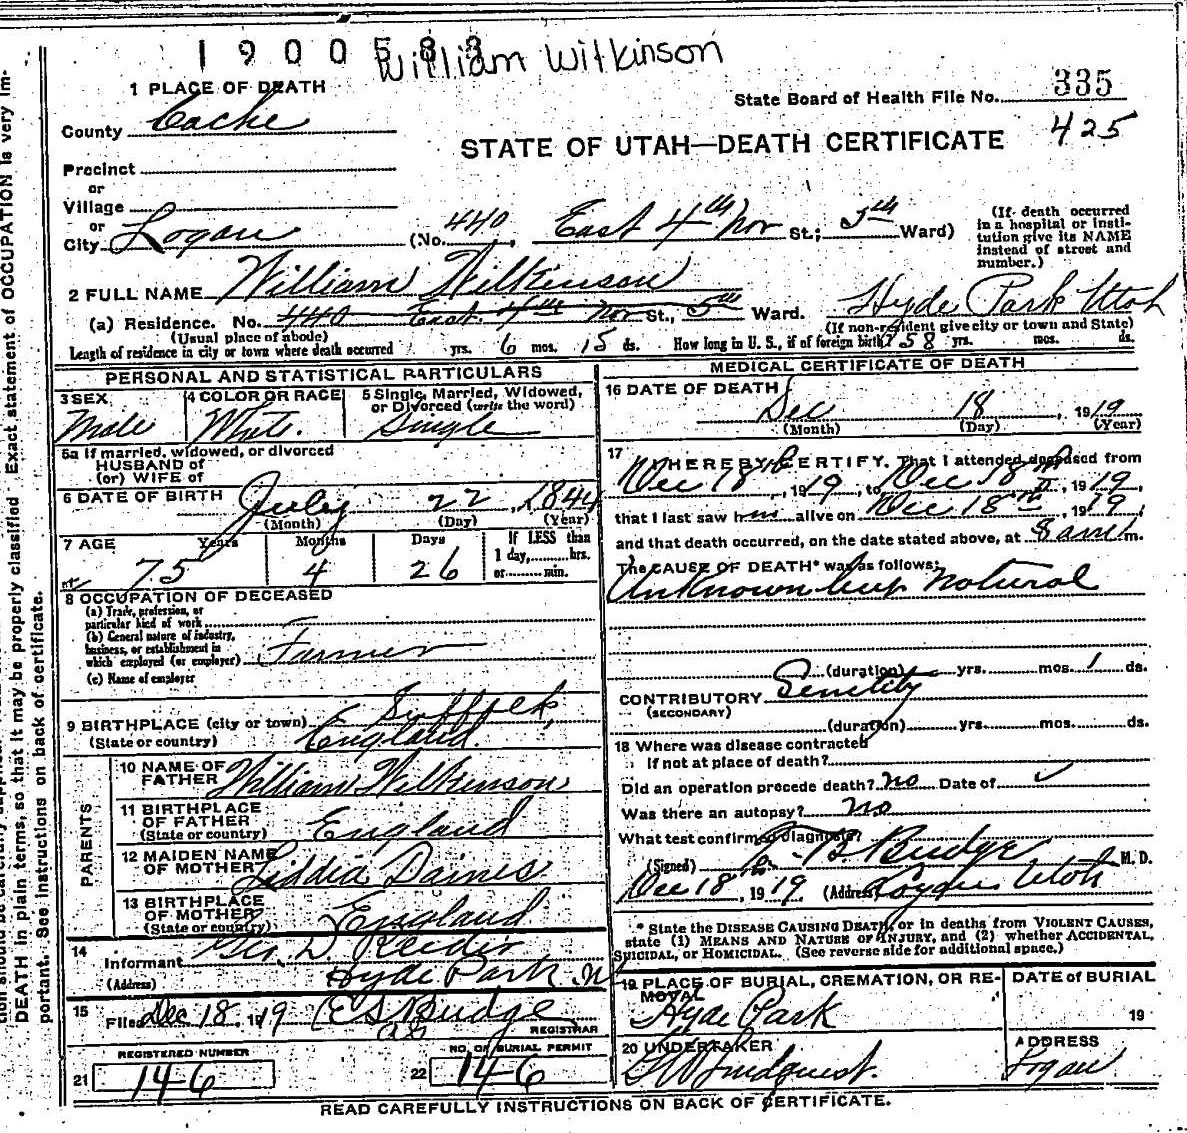 1900583
William Wilkinson
1 PLACE OF DEATH
State Board of Health File No. 335
County Cache
425
STATE OF UTAH—DEATH CERTIFICATE
Precinct
or
Village
or
City Logan (No. 440, East 4th Nor St.; 5th Ward)
(If death occurred in a hospital or insti-
tution give its NAME
instead of street and
number.)
2 FULL NAME William Wilkinson
(a) Residence. No. 440 East 4th Nor St., 5th Ward. Hyde Park Utah
(Usual place of abode) (If non-resident give city or town and State)
Length of residence in city or town where death occurred yrs. 6 mos. 15 ds. How long in U. S., if of foreign birth? 58 yrs. mos. ds.
PERSONAL AND STATISTICAL PARTICULARS
3 SEX Male
4 COLOR OR RACE White
5 Single, Married, Widowed, or Divorced (write the word) Single
5a If married, widowed, or divorced
HUSBAND of
(or) WIFE of
6 DATE OF BIRTH July 22, 1844
(Month) (Day) (Year)
7 AGE Years Months Days If LESS than
1 day, hrs.
or min.
75 4 26
8 OCCUPATION OF DECEASED
(a) Trade, profession, or
particular kind of work
(b) General nature of industry,
business, or establishment in
which employed (or employer) Farmer
(c) Name of employer
9 BIRTHPLACE (city or town) Suffolk,
(State or country) England.
PARENTS
10 NAME OF FATHER William Wilkinson
11 BIRTHPLACE OF FATHER (State or country) England
12 MAIDEN NAME OF MOTHER Liddia Daines
13 BIRTHPLACE OF MOTHER (State or country) England
14 Informant Geo. D. Reeder
(Address) Hyde Park U
15 Filed Dec 18, 1919 E S Budge
REGISTRAR
REGISTERED NUMBER
21 146
NO. OF BURIAL PERMIT
22 146
MEDICAL CERTIFICATE OF DEATH
16 DATE OF DEATH
Dec 18, 1919
(Month) (Day) (Year)
17 I HEREBY CERTIFY, That I attended deceased from
Dec 18th, 1919, to Dec 18th, 1919,
that I last saw him alive on Dec 18th, 1919,
and that death occurred, on the date stated above, at 8 am m.
The CAUSE OF DEATH* was as follows:
Unknown but natural
(duration) yrs. mos. 1 ds.
CONTRIBUTORY Senility
(SECONDARY)
(duration) yrs. mos. ds.
18 Where was disease contracted
If not at place of death?
Did an operation precede death? no Date of
Was there an autopsy? no
What test confirmed diagnosis?
(Signed) Budge M. D.
Dec 18th, 1919 (Address) Logan Utah
* State the DISEASE CAUSING DEATH, or in deaths from VIOLENT CAUSES,
state (1) MEANS AND NATURE OF INJURY, and (2) whether ACCIDENTAL,
SUICIDAL, or HOMICIDAL. (See reverse side for additional space.)
19 PLACE OF BURIAL, CREMATION, OR RE-
MOVAL
Hyde Park
DATE of BURIAL
19
20 UNDERTAKER
Lindquist.
ADDRESS
Logan
READ CAREFULLY INSTRUCTIONS ON BACK OF CERTIFICATE.
DEATH in plain terms, so that it may be properly classified. Exact statement of OCCUPATION is very im-
portant. See instructions on back of certificate.